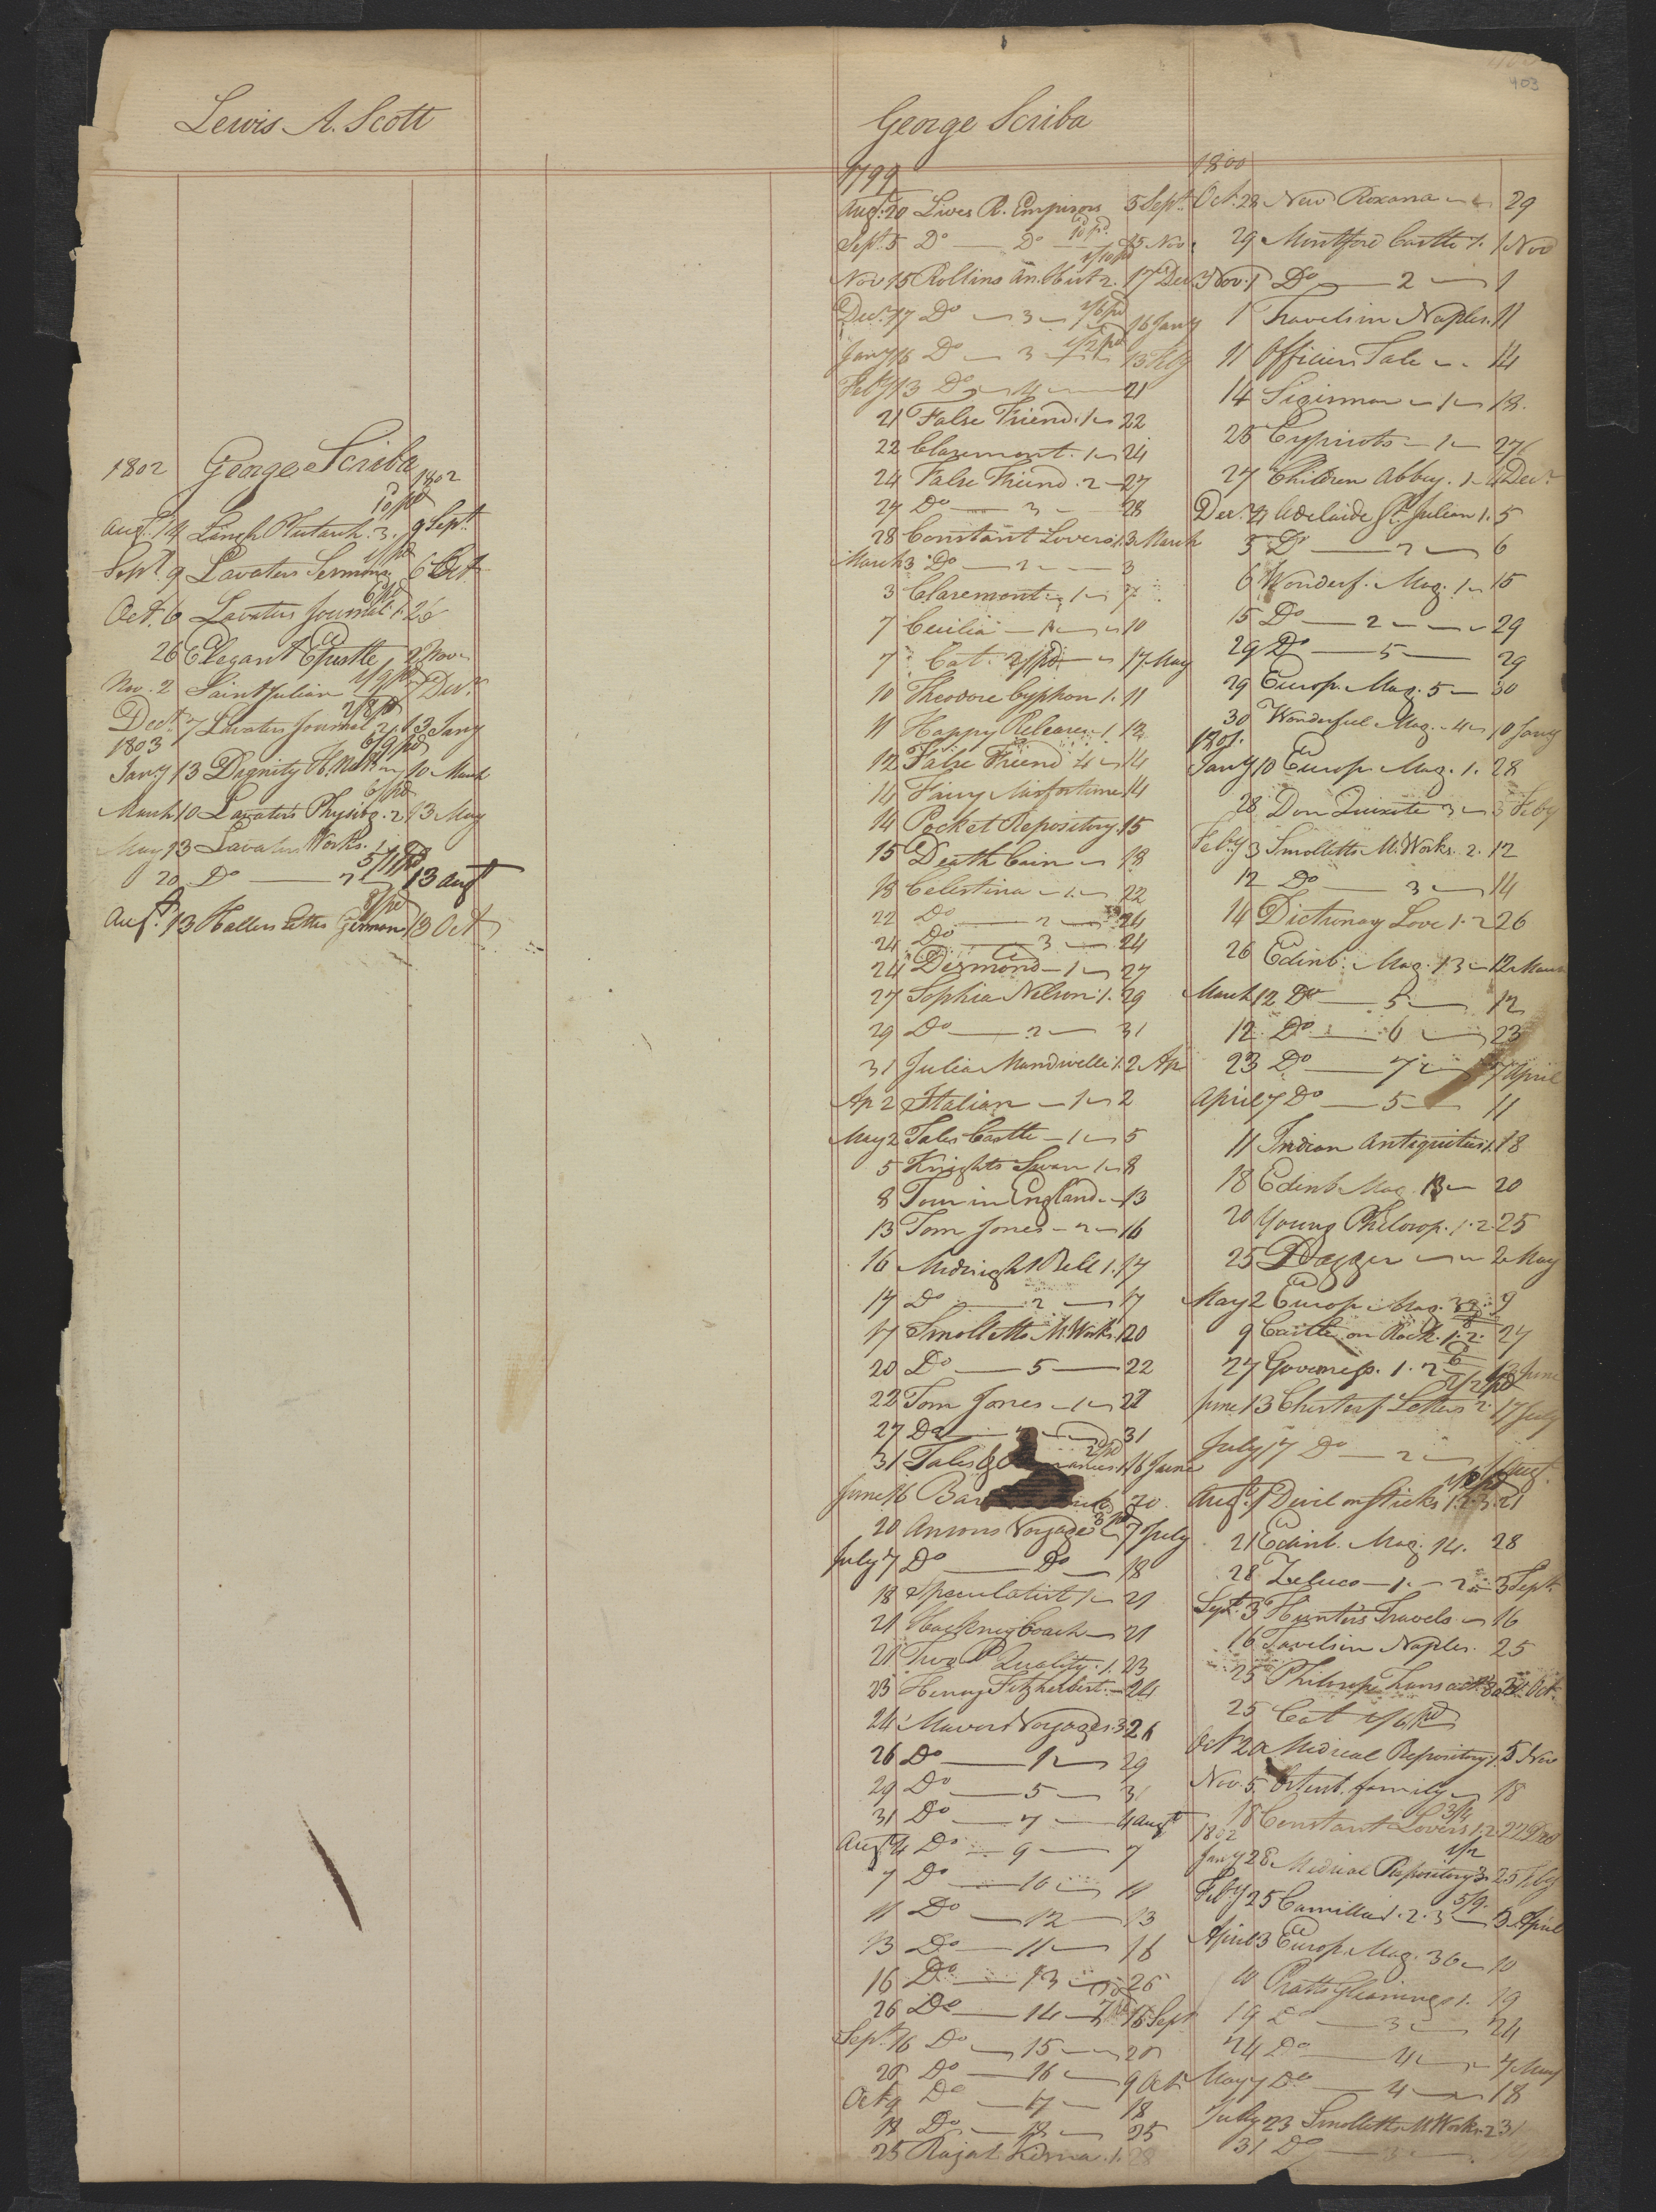 403
Lewis A. Scott
1802 George Scriba 1802
10/pd
Augt. 14 Langh Plutarch. 3. 9 Sept.
Sept. 9 Lavaters Sermons 6 Oct
Oct. 6 Lavaters Journal. 1. 26
26 Elegant Epistle 2 Nov
1/9 pd
Nov. 2 Saint Julian 7 Decr.
2/8 pd
Decr. 7 Lavaters Journal 2 13 Jany
1803
6/9 pd
Jany 13 Dignity H. Nat 10 March
6/pd
March 10 Lavaters Physiog. 2 13 May
May 13 Lavaters Works. 1
5/11 pd
20 Do 2 13 Augt
8/pd
Augt. 13 Hallers Letters German 13 Oct
George Scriba
1799
Augt. 20 Lives R. Emperors 5 Sept.
10 pd.
Sept. 5 Do Do 15 Nov.
1/10 pd
Nov 15 Rollins An. Hist 2. 17 Decr
1/6 pd
Decr. 17 Do 3 16 Jany
1/2 pd
Jany 16 Do 3 13 Feby
Feby 13 Do 4 21
21 False Friend. 1 22
22 Claremont. 1 24
24 False Friend. 2 27
27 Do 3 28
28 Constant Lovers 1. 3 March
March 3 Do 2 3
3 Claremont 1 7
7 Cecilia 10
7 Cat. 2/pd 17 May
10 Theodore Cyphon 1. 11
11 Happy Release 1 12
12 False Friend 4 14
14 Fairy Misfortune 14
14 Pocket Repository. 15
15 Death Cain 18
18 Celestina 1. 22
22 Do 2 24
24 Do 3 24
24 Desmond 1 27
27 Sophia Nelson 1. 29
29 Do 2 31
31 Julia Mandwelle 1. 2 Ap
Ap 2 Italian 1 2
May 2 Tales Castle 1 5
5 Knights Swan 1 8
8 Tour in England 13
13 Tom Jones 2 16
16 Midnight Bell 1. 17
17 Do 2 17
17 Smolletts M. Works. 1 20
20 Do 5 22
22 Tom Jones 1 27
27 Do 31
31 Tales 16 June
June 16 20
20 Ansons Voyage 7 July
July 7 Do Do 18
18 Speculatist 1 21
21 Hackney Coach 21
21 Two P Quality. 1. 23
23 Henry Fitzherbert 24
24 Mavors Voyages. 3 26
26 Do 1 29
29 Do 5 31
31 Do 7 4 Augt
Augt 4 Do 9 7
7 Do 10 11
11 Do 12 13
13 Do 11 16
16 Do 13 26
26 Do 14 16 Sept
Sept. 16 Do 15 20
20 Do 16 9 Oct.
Oct 9 Do 17 18
18 Do 18 25
25 Rajah Kisna. 1. 28
1800
Oct. 28 New Roxana 29
29 Montford Castle 1. 1 Nov
Nov. 1 Do 2 1
1 Travels in Naples. 11
11 Officers Tale 14
14 Sigismar 1 18.
25 Cypriots 1 27
27 Children Abbey. 1 4 Decr.
Decr. 4 Adelaide St. Julian 1. 5
5 Do 2 6
6 Wonderf. Mag. 1 15
15 Do 2 29
29 Do 5 29
29 Europ. Mag. 5 30
30 Wonderful Mag. 4 10 Jany
1801.
Jany 10 Europ. Mag. 1. 28
28 Don Quixote 3 3 Feby
Feby 3 Smolletts M. Works. 2. 12
12 Do 3 14
14 Dictionary Love 1. 2 26
26 Edinb. Mag. 13 12 March
March 12 Do 5 12
12 Do 6 23
23 Do 7 7 April
April 7 Do 5 11
11 Indian Antiquities 1. 18
18 Edinb Mag. 13 20
20 Young Philosop. 1. 2. 25
25 Dagger 2 May
May 2 Europ. Mag. 9
9 Castle on Rock. 1. 2. 27
27 Governess. 1. 2 13 June
2/2 pd
June 13 Chesterf. Letters 2. 17 July
July 17 Do 2 1 Augt.
Augt. 1 Devil on Sticks 1. 2. 3. 21
21 Edinb. Mag. 14. 28
28 Zeluco 1. 2 3 Sept.
Sept. 3 Hunters Travels 16
16 Tavels in Naples. 25
25 Philosop. Transact. 20 Oct.
25 Cat 1/6 pd
Oct 20 Medical Repository 1. 5 Nov
Nov. 5 Ortenb. family 18
3/4
18 Constant Lovers 1. 2
1802
1/2
Jany 28 Medical Repository 3. 25 Feby
5/9.
Feby 25 Camilla 1. 2. 3 3 April
April 3 Europ. Mag. 36 10
10 Pratts Gleanings 1. 19
19 Do 3 24
24 Do 4 7 May
May 7 Do 4 18
July 23 Smolletts M Works. 2 31
31 Do 3